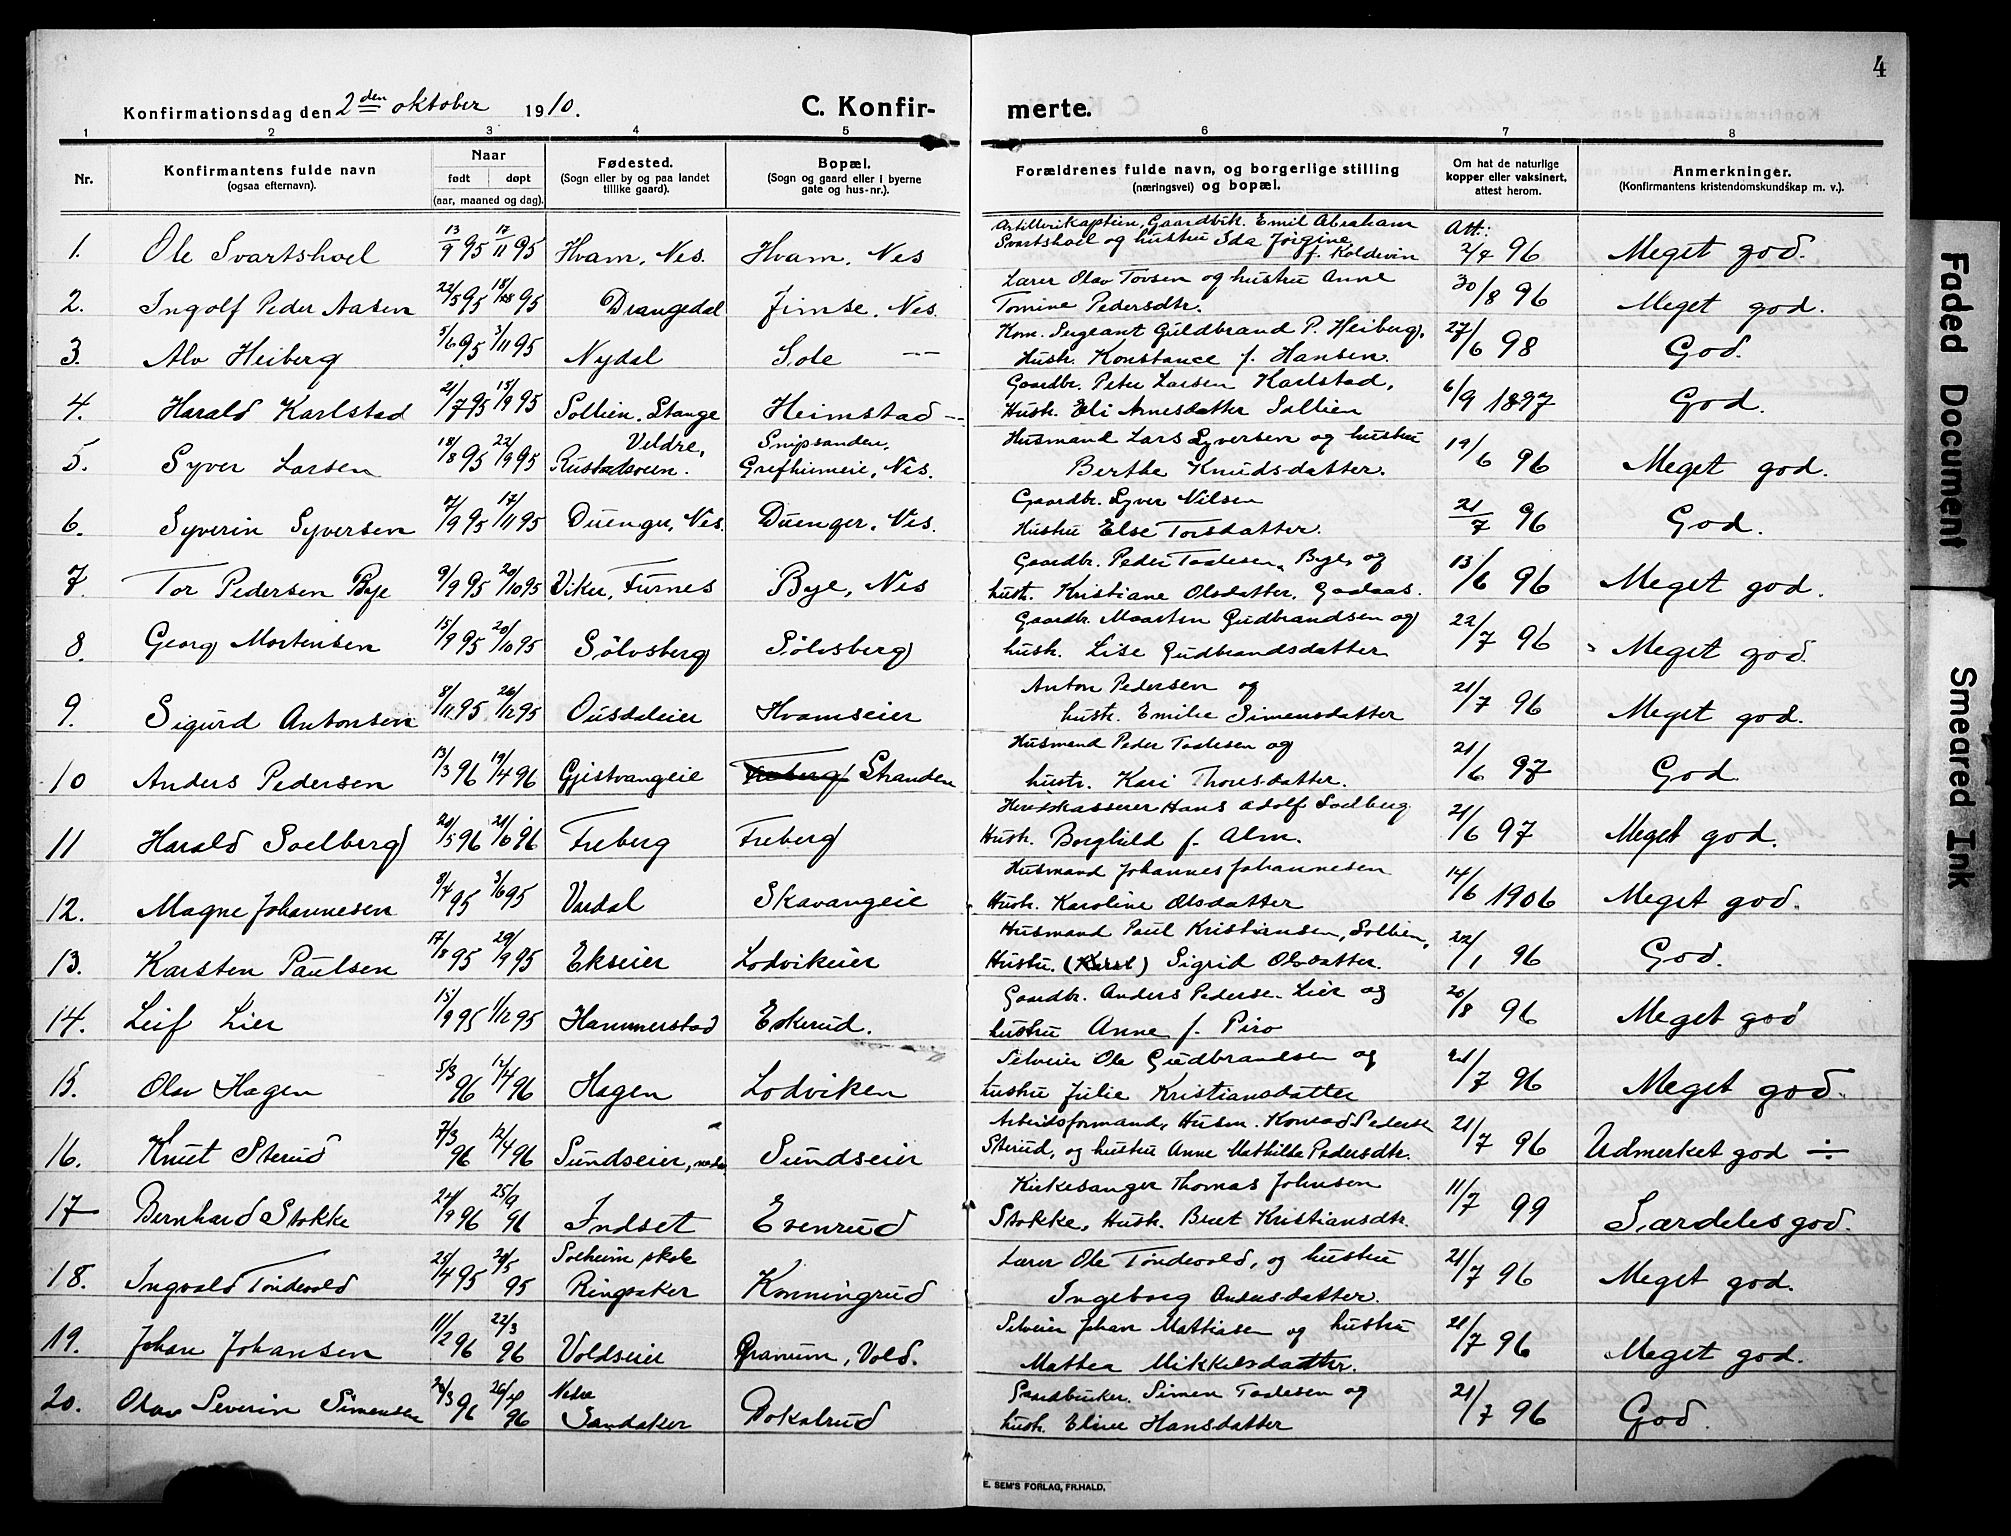 4
Konfirmationsdag den 2den oktober 1910.
C. Konfirmerte.
1 2 3 4 5 6 7 8
Nr.
Konfirmantens fulde navn
(ogsaa efternavn).
Naar
født døpt
(aar, maaned og dag).
Fødested.
(Sogn eller by og paa landet
tillike gaard).
Bopæl.
(Sogn og gaard eller i byerne
gate og hus-nr.).
Forældrenes fulde navn, og borgerlige stilling
(næringsvei) og bopæl.
Om hat de naturlige
kopper eller vaksinert,
attest herom.
Anmerkninger.
(Konfirmantens kristendomskundskap m. v.).
Artillerikaptein, Gaardbr. Emil Abraham Att:
1. Ole Svartshoel 13/9 95 17/11 95 Hvam, Nes. Hvam, Nes Svartshoel og hustru Ida Jørgine f. Koldevin 2/7 96 Meget god.
Lærer Olav Tovsen og hustru Anne
2. Ingolf Peder Aasen 22/5 95 95 Drangedal Jimse, Nes. Tomine Pedersdtr. 30/8 96 Meget god.
Kom. Sergeant Guldbrand P. Heiberg,
3. Alv Heiberg 5/6 95 3/11 95 Nydal Sole -- Hustr. Konstance f. Hansen. 27/6 98 God.
Gaardbr. Peter Larsen Karlstad,
4. Harald Karlstad 21/7 95 15/9 95 Sollien. Stange Heimstad -- Hustr. Eli Arnesdatter Sollien 6/9 1897 God.
Veldre, Snipsanden, Husmand Lars Syversen og hustru
5. Syver Larsen 18/8 95 22/9 95 Rustadsveen. Grefhiemeie, Nes. Berthe Knudsdatter. 19/6 96 Meget god.
Gaardbr. Syver Nilsen
6. Syverin Syversen 7/9 95 17/11 95 Duenger, Nes. Duenger, Nes. Hustru Else Torsdatter. 21/7 96 God.
Gaardbr. Peder Taalesen, Bye, og
7. Tor Pedersen Bye 9/9 95 20/10 95 Viker, Furnes Bye, Nes hustr. Kristiane Olsdatter, Gaaaas. 13/6 96 Meget god.
Gaardbr. Maarten Gudbrandsen og
8. Georg Mortensen 15/9 95 20/10 95 Sölvsberg Sölvsberg hustr. Lise Gudbrandsdatter 22/7 96 Meget god.
Anton Pedersen og
9. Sigurd Antonsen 8/11 95 26/12 95 Ousdaleier Hvamseier hustr. Emilie Simensdatter 21/7 96 Meget god.
Husmand Peder Taalesen og
10 Anders Pedersen 13/3 96 19/4 96 Gjestvangeie Freberg Stranden hustr. Kari Thoresdatter. 21/6 97 God
Herredskasserer Hans Adolf Soelberg
11 Harald Soelberg 20/5 96 96 Freberg Freberg Hustr. Borghild f. Alm. 21/6 97 Meget god.
Husmand Johannes Johannesen
12. Magne Johannesen 8/4 95 3/6 95 Vardal Skavangeie Hustr. Karoline Olsdatter 14/6 1906 Meget god.
Husmand Paul Kristiansen, Sollien,
13. Karsten Paulsen 17/8 95 29/9 95 Ekseier Lodvikeier Hustru. Sigrid Olsdatter. 22/1 96 God.
Gaardbr. Anders Pederse. Lier og
14. Leif Lier 15/9 95 1/12 95 Hammerstad Eskerud. hustru Anne f. Piro 20/8 96 Meget god
Selveier Ole Gudbrandsen og
15. Olav Hagen 5/3 96 12/4 96 Hagen Lodviken hustru Julie Kristiansdatter 21/7 96 Meget god.
Arbeidsformand, Husm. Konrad Pederse
16. Knut Sterud 7/3 96 12/4 96 Sundseier, nedre Sundseier Sterud, og hustru Anne Mathilde Pedersdtr. 21/7 96 Udmerket god ÷
Kirkesanger Thomas Johnsen
17 Bernhard Stokke 96 25/9 96 Indset Evenrud Stokke, Hustr. Brit Kristiansdtr. 11/7 99 Særdeles god.
Solheim skole Lærer Ole Töndevold, og hustru
18. Ingvald Töndevold 25/4 95 95 Ringsaker Konningrud Ingeborg Andersdatter. 21/7 96 Meget god.
Selveier Johan Mattiasen og hustru
19. Johan Johansen 11/2 96 22/3 96 Voldseier Granum, Vold. Mathea Mikkelsdatter. 21/7 96 Meget god.
Nedre Gaardbruker. Simen Taalesen og
20. Olav Severin Simensen 96 26/4 96 Sandaker Dokalrud hustr. Eline Hansdatter 21/7 96 God.
E. SEM'S FORLAG, FR.HALD.
Faded Document
Smeared Ink